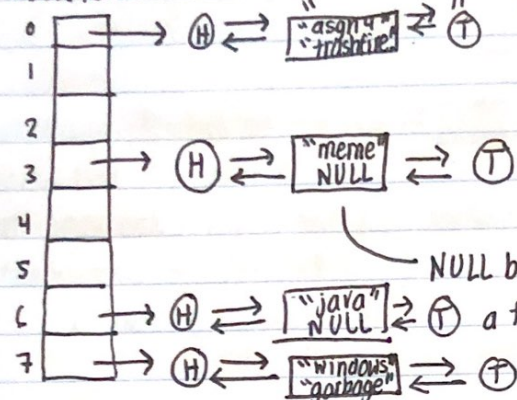 0 H "asgn4" "trashfire" T
1
2
3 H "meme" NULL T
4
5
NULL b
6 H "java" NULL T a
7 H "windows" "garbage" T